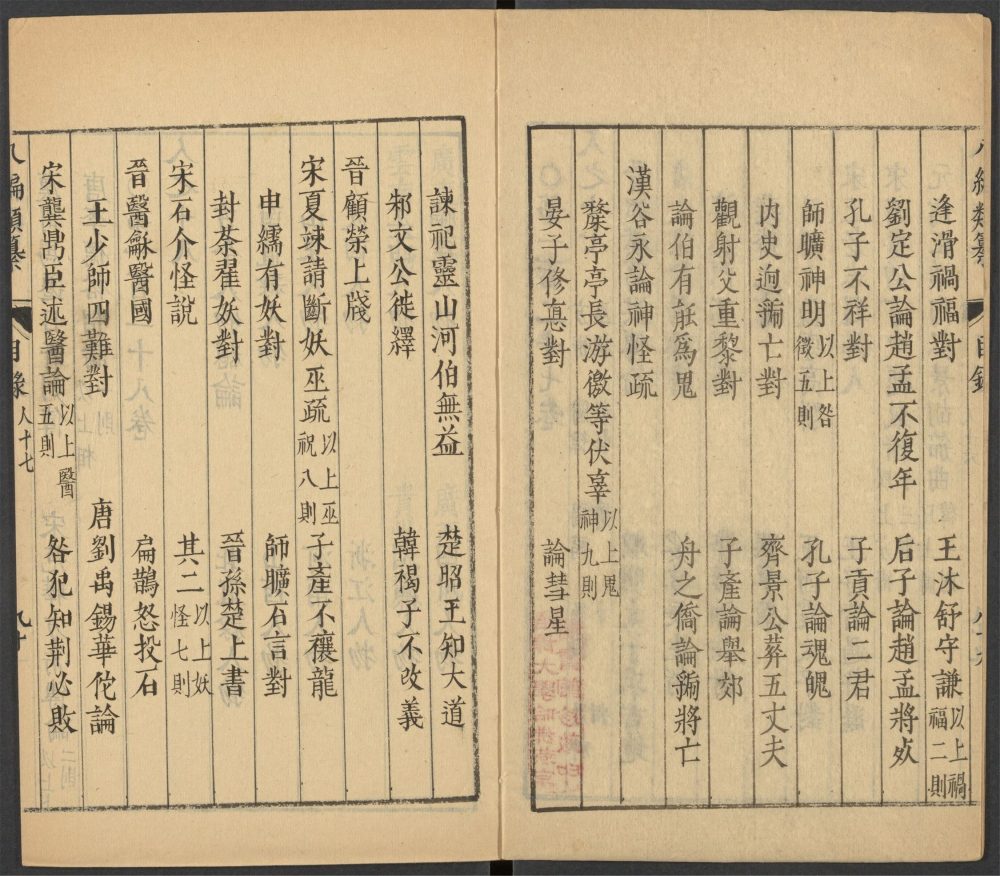 逢滑禍福對 王沐舒守謙以上禍福二則
劉定公論趙孟不復年 后子論趙孟將歿
孔子不祥對 子貢論二君
師曠神明以上咎徵五則 孔子論魂魄
内史過虢亡對 齊景公葬五丈夫
觀射父重黎對 子產論舉郊
論伯有所爲鬼 舟之僑論虢將亡
漢谷永論神怪疏
斄亭亭長游徼等伏辜以上鬼神九則
晏子修悳對 論彗星
諫祀靈山河伯無益 楚昭王知大道
邾文公徙繹 韓褐子不改義
晉顧榮上牋
宋夏竦請斷妖巫疏以上巫祝八則 子產不禳龍
申繻有妖對 師曠石言對
封荼翟妖對 晉孫楚上書
宋石介怪說 其二以上妖怪七則
晉醫龢醫國 扁鵲怒投石
王少師四難對 唐劉禹錫華佗論
宋龔鼎臣述醫論以上醫五則 咎犯知荆必敗
八編類纂 目錄 人十七 九十